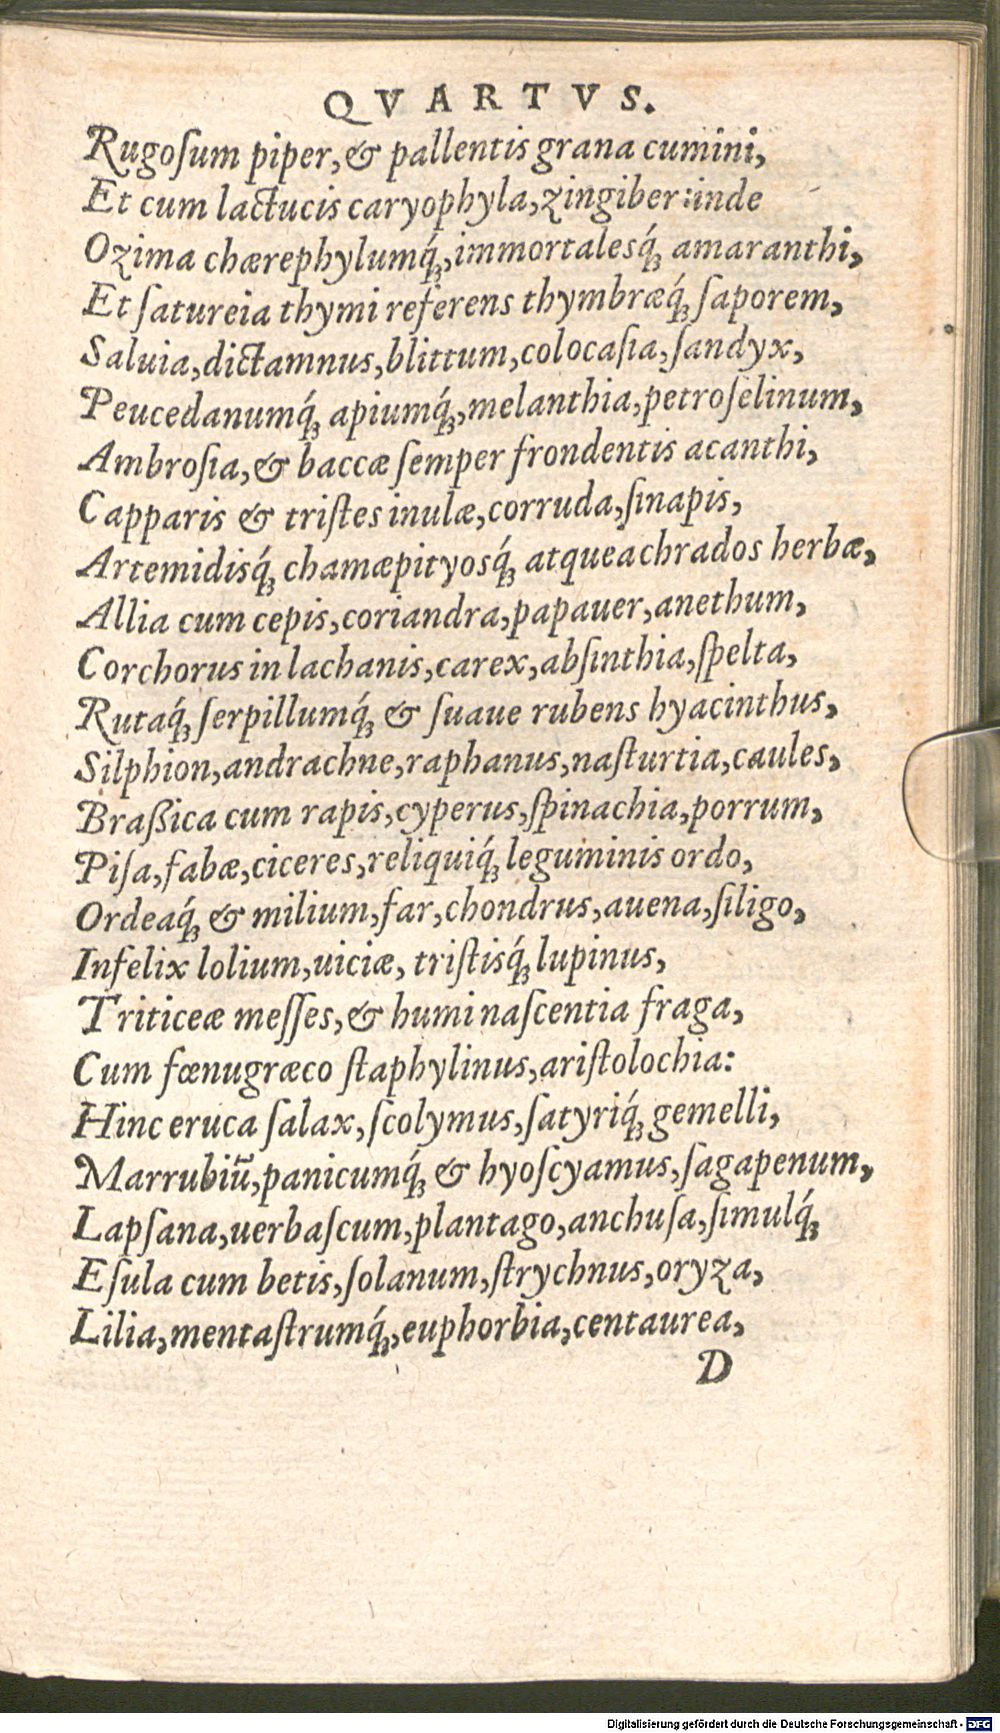 QVARTVS.
Rugoſum piper, & pallentis grana cumini,
Et cum lactucis caryophyla, zingiber: inde
Ozima chærephylumq́ꝫ, immortalesq́ꝫ amaranthi,
Et ſatureia thymi referens thymbræq́ꝫ ſaporem,
Saluia, dictamnus, blittum, colocaſia, ſandyx,
Peucedanumq́ꝫ apiumq́ꝫ, melanthia, petroſelinum,
Ambroſia, & baccæ ſemper frondentis acanthi,
Capparis & triſtes inulæ, corruda, ſinapis,
Artemidisq́ꝫ chamæpityosq́ꝫ atque achrados herbæ,
Allia cum cepis, coriandra, papauer, anethum,
Corchorus in lachanis, carex, abſinthia, ſpelta,
Rutaq́ꝫ ſerpillumq́ꝫ & ſuaue rubens hyacinthus,
Silphion, andrachne, raphanus, naſturtia, caules,
Braßica cum rapis, cyperus, ſpinachia, porrum,
Piſa, fabæ, ciceres, reliquiq́ꝫ leguminis ordo,
Ordeaq́ꝫ & milium, far, chondrus, auena, ſiligo,
Infelix lolium, uiciæ, triſtisq́ꝫ lupinus,
Triticeæ meſſes, & humi naſcentia fraga,
Cum fœnugræco ſtaphylinus, ariſtolochia:
Hinc eruca ſalax, ſcolymus, ſatyriq́ꝫ gemelli,
Marrubiū, panicumq́ꝫ & hyoſcyamus, ſagapenum,
Lapſana, uerbaſcum, plantago, anchuſa, ſimulq́ꝫ
Eſula cum betis, ſolanum, ſtrychnus, oryza,
Lilia, mentaſtrumq́ꝫ, euphorbia, centaurea,
D
Digitalisierung gefördert durch die Deutsche Forschungsgemeinschaft - DFG